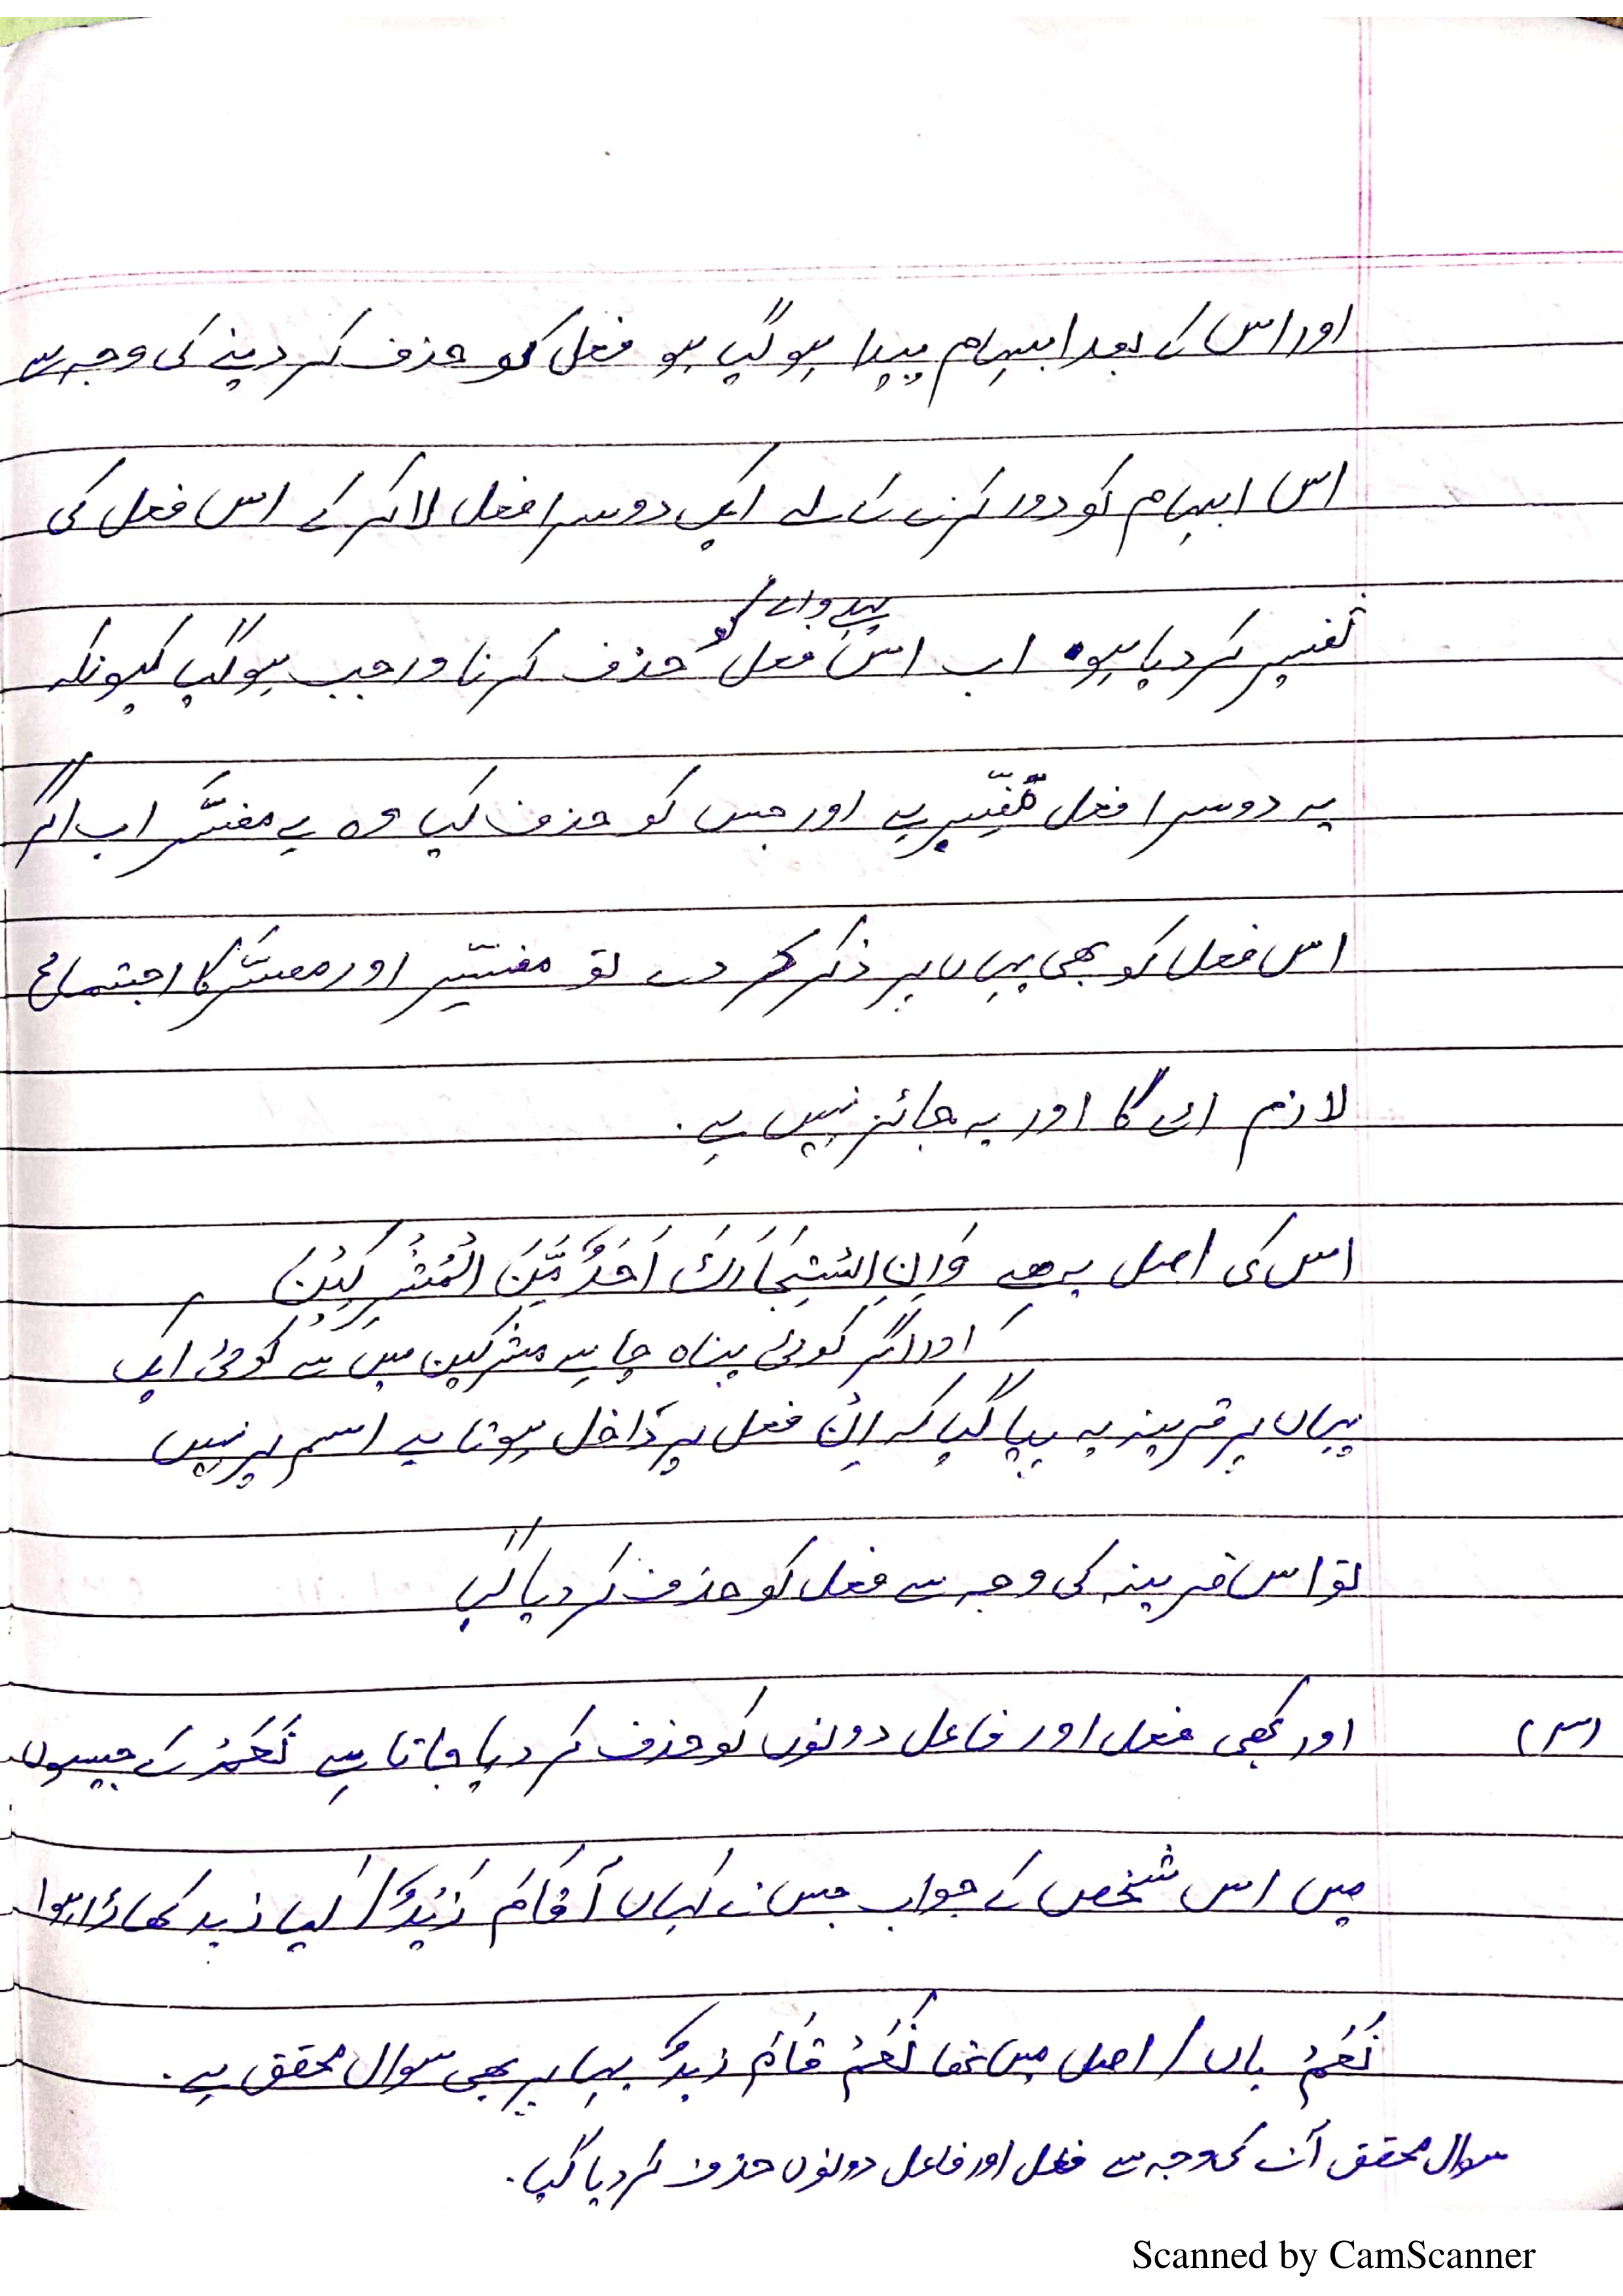 اور اس کے بعد ابہام پیدا ہو گیا ہو فعل کو حذف کر دینے کی وجہ سے
اس ابہام کو دور کرنے کے لۓ ایک دوسرا فعل لا کر کے اس فعل کی
پہلے والے کو
تفسیر کر دیا ہو۔ اب اس فعل حذف کرنا واجب ہو گیا کیونکہ
یہ دوسرا فعل مُفَسِّر ہے اور جس کو حذف کیا وہ ہے مفسَّر اب اگر
اس فعل کو بھی یہاں پر ذکر کر دے تو مفسِّر اور مفسَّر کا اجتماع
لازم اۓ گا اور یہ جائز نہیں ہے۔
اس کی اصل یہ ھے وَاِنِ اسْتَجَارَكَ اَحَدٌ مِّنَ الْمُشْرِكِيْنَ
اور اگر کوئی پناہ چاہے مشرکین میں سے کوئی ایک
یہاں پر قرینہ یہ پایا گیا کہ اِنْ فعل پر داخل ہوتا ہے اسم پر نہیں
تو اس قرینہ کی وجہ سے فعل کو حذف کر دیا گیا
(س) اور کبھی فعل اور فاعل دونوں کو حذف کر دیا جاتا ہے نَعَمْ کے جیسوں
میں اس شخص کے جواب جس نے کہاں اَقَامَ زَيْدٌ / کیا زید کھاڑا ہوا
نَعَمْ ہاں / اصل میں تھا نَعَمْ قَامَ زیدٌ یہا پر بھی سوال محقق ہے۔
سوال محقق آنے کی وجہ سے فعل اور فاعل دونوں حذف کر دیا گیا۔
Scanned by CamScanner